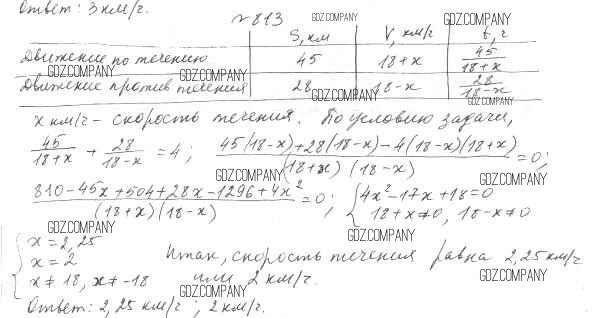 Ответ: 3 км/ч.
№813 GDZ.COMPANY GDZ.COMPANY
S, км V, км/ч t, ч
Движение по течению 45 18+x 45/(18+x)
GDZ.COMPANY GDZ.COMPANY
Движение против течения 28 18-x 28/(18-x)
GDZ.COMPANY GDZ.COMPANY
x км/ч - скорость течения. По условию задачи,
45/(18+x) + 28/(18-x) = 4; (45(18-x)+28(18-x)-4(18-x)(18+x))/((18+x)(18-x)) = 0;
GDZ.COMPANY GDZ.COMPANY
(810-45x+504+28x-1296+4x²)/((18+x)(18-x)) = 0; { 4x²-17x+18=0
18+x≠0, 18-x≠0
GDZ.COMPANY GDZ.COMPANY
{ x = 2,25
x = 2 Итак, скорость течения равна 2,25 км/ч
x ≠ 18, x ≠ -18 или 2 км/ч.
GDZ.COMPANY GDZ.COMPANY
Ответ: 2,25 км/ч; 2 км/ч.